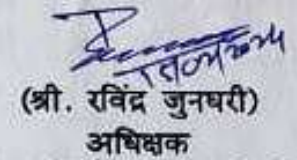 (श्री. रविंद्र जुनघरी)
अधिक्षक